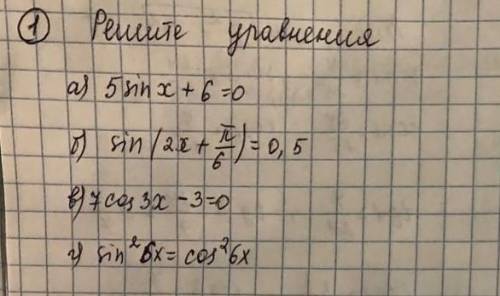 ① Решите уравнения
а) 5 sin x + 6 = 0
б) sin (2x + π/6) = 0,5
в) 7 cos 3x - 3 = 0
г) sin² 6x = cos² 6x